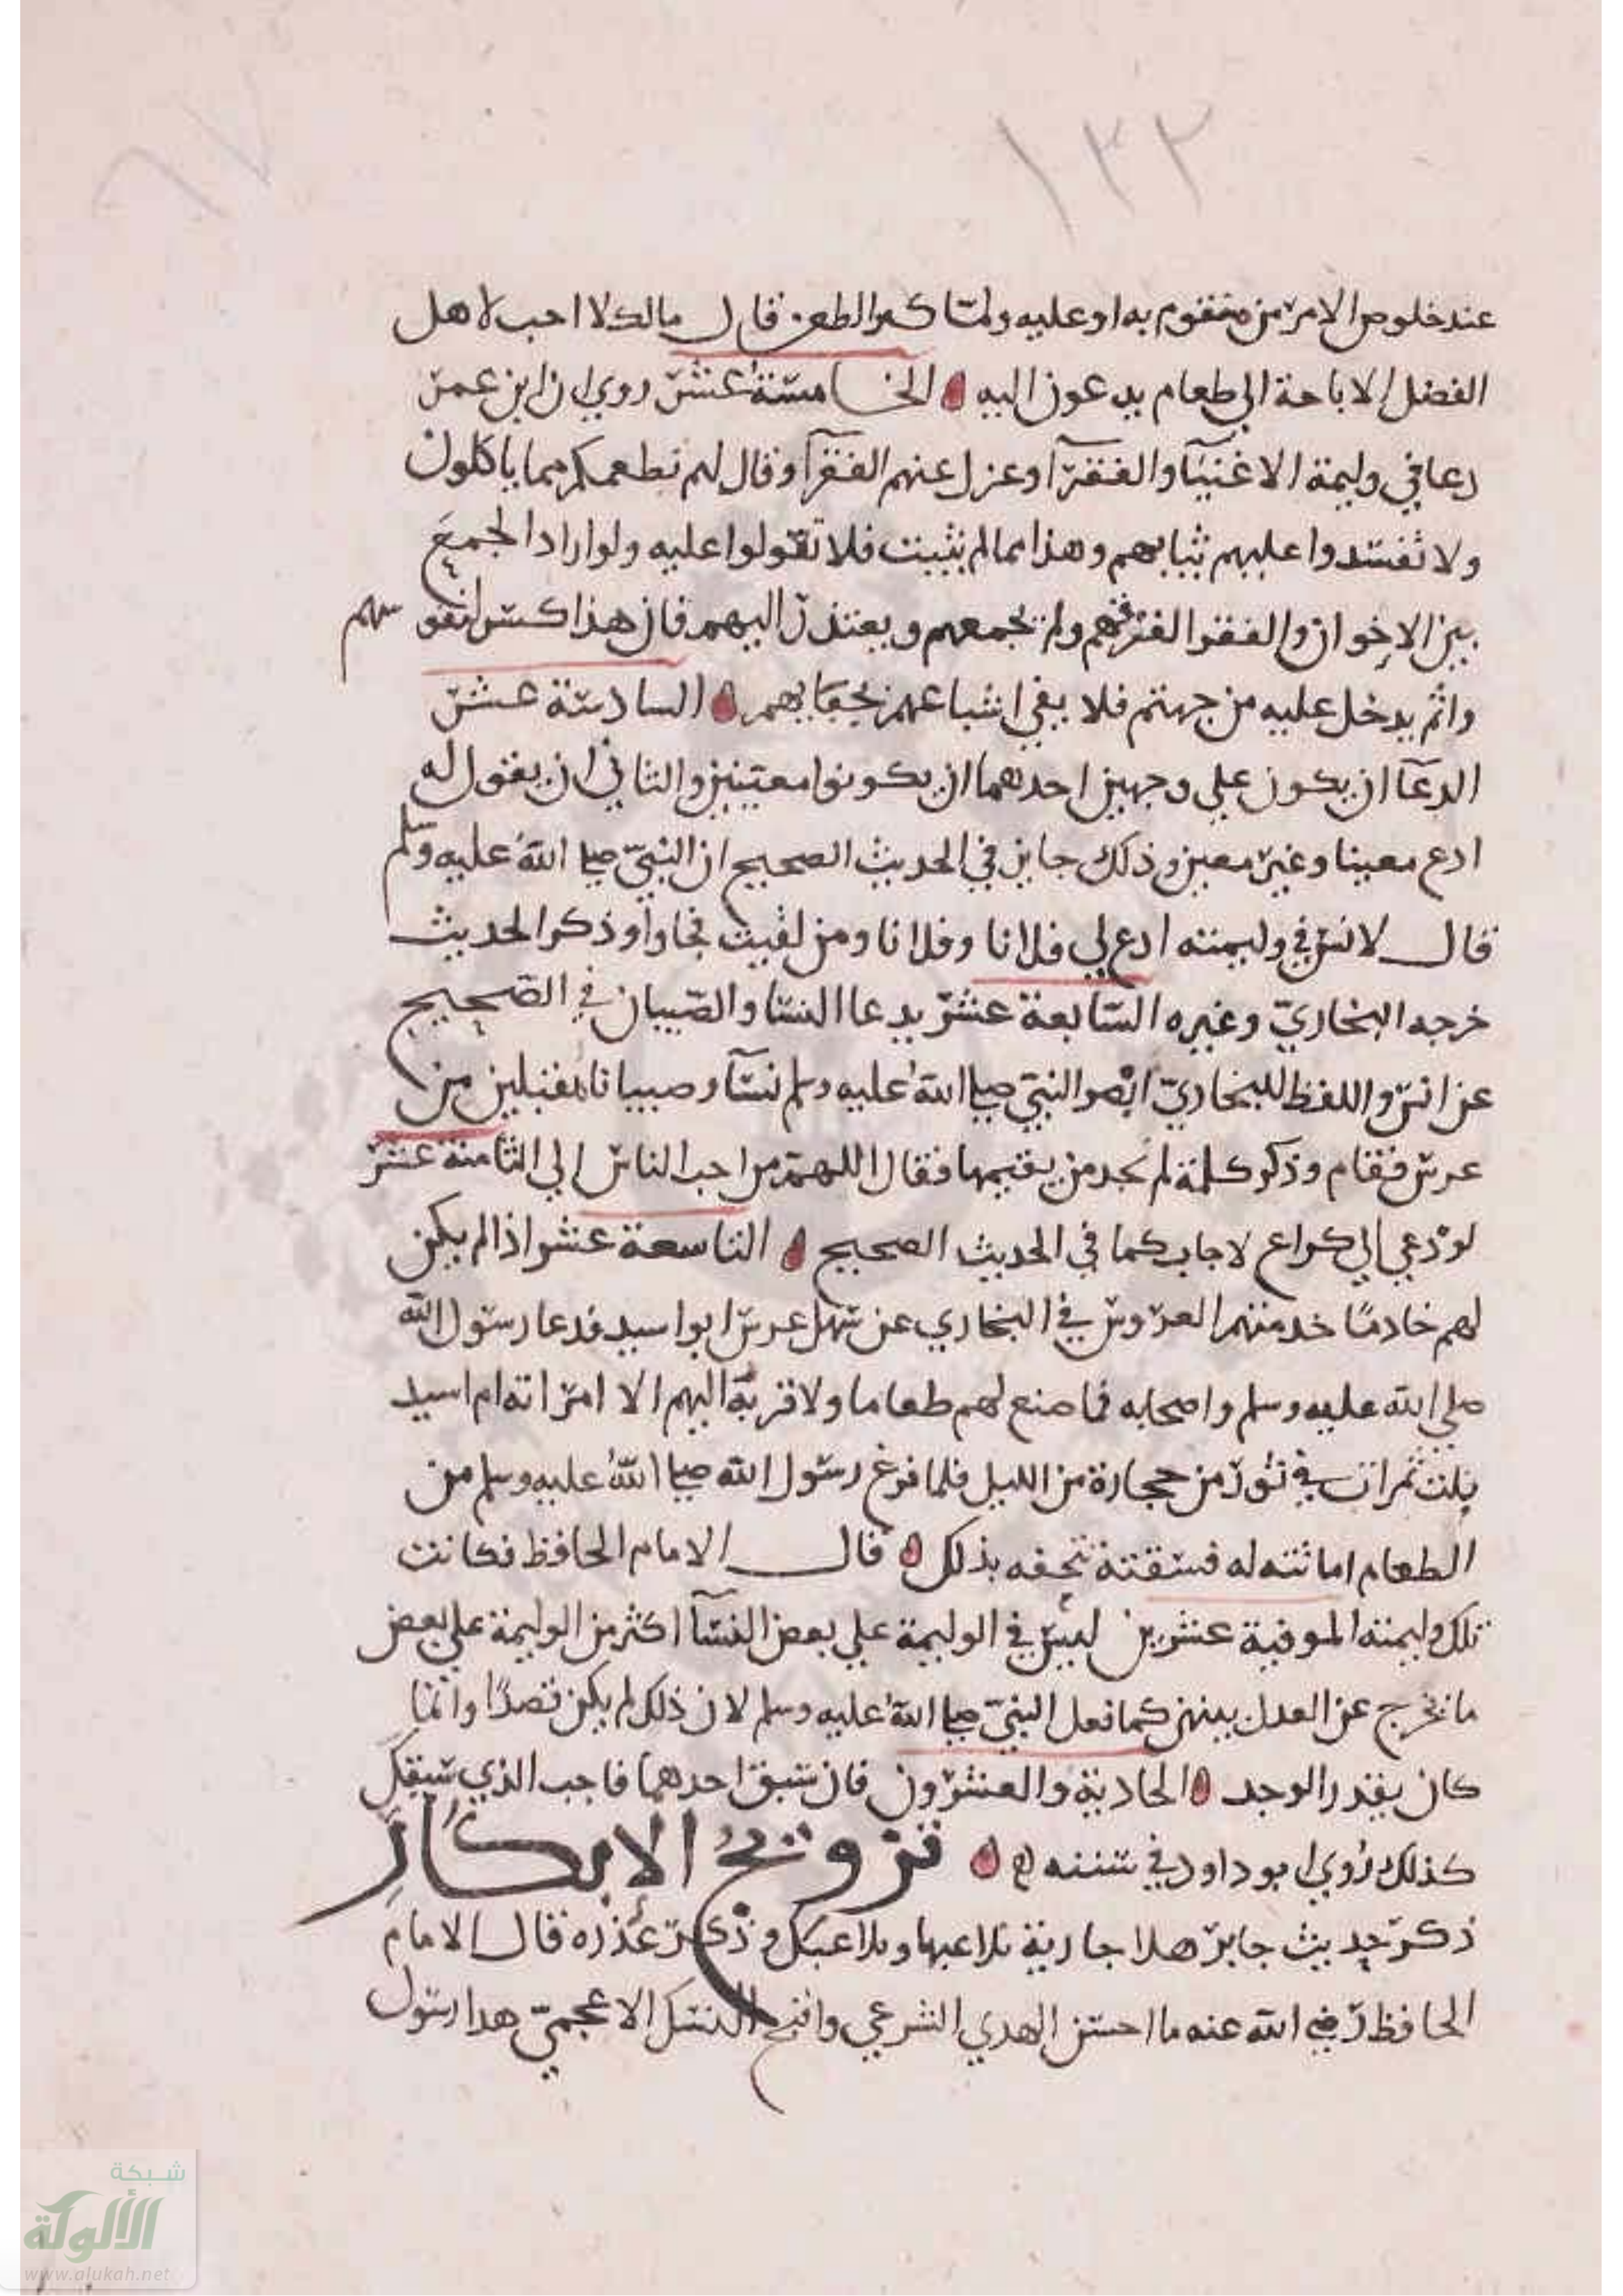 ١٣٣
٦٧
عند خلوص الامر من متقوم به او عليه ولما كثر الطعن قال مالك لا احب لاهل
الفضل الاباحة الي طعام يدعون اليه الخامسة عشر روي ان ابن عمر
دعا في وليمة الاغنيآ والفقرآ وعزل عنهم الفقرآ وقال لهم نطعمكم مما ياكلون
ولا تفسدوا عليهم ثيابهم وهذا مما لم يثبت فلا تقولوا عليه ولو اراد الجمع
بين الاخوان والفقرا لفرقهم ولم يجمعهم ويعتذر اليهم فان هذا كسر لنفوسهم
واثم يدخل عليه من جهتهم فلا يفي اشباعهم
السادسة عشر
الدعآ ان يكون علي وجهين احدهما ان يكونوا معينين والثاني ان يقول له
ادع معينا وغير معين وذلك جايز في الحديث الصحيح ان النبي صلى الله عليه وسلم
قال لانس في وليمته ادع لي فلانا وفلانا ومن لقيت فجاوا وذكر الحديث
خرجه البخاري وغيره السابعة عشر يدعا النسا والصبيان في الصحيح
عن انس واللفظ للبخاري ابصر النبي صلى الله عليه وسلم نسآ وصبيانا مقبلين من
عرس فقام وذكر كلمة لم نجد من يقيمها فقال اللهم من احب الناس الي الثامنة عشر
لو دعي الي كراع لاجاب كما في الحديث الصحيح التاسعة عشر اذا لم يكن
لهم خادما خدمتهم العروس في البخاري عن سهل عرس ابو اسيد فدعا رسول الله
صلي الله عليه وسلم واصحابه فما صنع لهم طعاما ولا قربه اليهم الا امراته ام اسيد
بلت ثمرات في تور من حجارة من الليل فلما فرغ رسول الله صلى الله عليه وسلم من
الطعام اماثته له فسقته تتحفه بذلك قال الامام الحافظ فكانت
تلك وليمته الموفية عشرين ليس في الوليمة علي بعض النسآ اكثر من الوليمة علي بعض
ما يخرج عن العدل بينهن كما فعل النبي صلى الله عليه وسلم لان ذلك لم يكن قصدا وانما
كان بقدر الوجد الحادية والعشرون فان سبق احدهما فاجب الذي سبقك
كذلك روي ابو داود في سننه تزويج الابكار
ذكر حديث جابر هلا جارية تلاعبها وتلاعبك وذكر عذره قال الامام
الحافظ رضي الله عنه ما احسن الهدي الشرعي واقبح النسك الاعجمي هدا رسول
شبكة
الألوكة
www.alukah.net